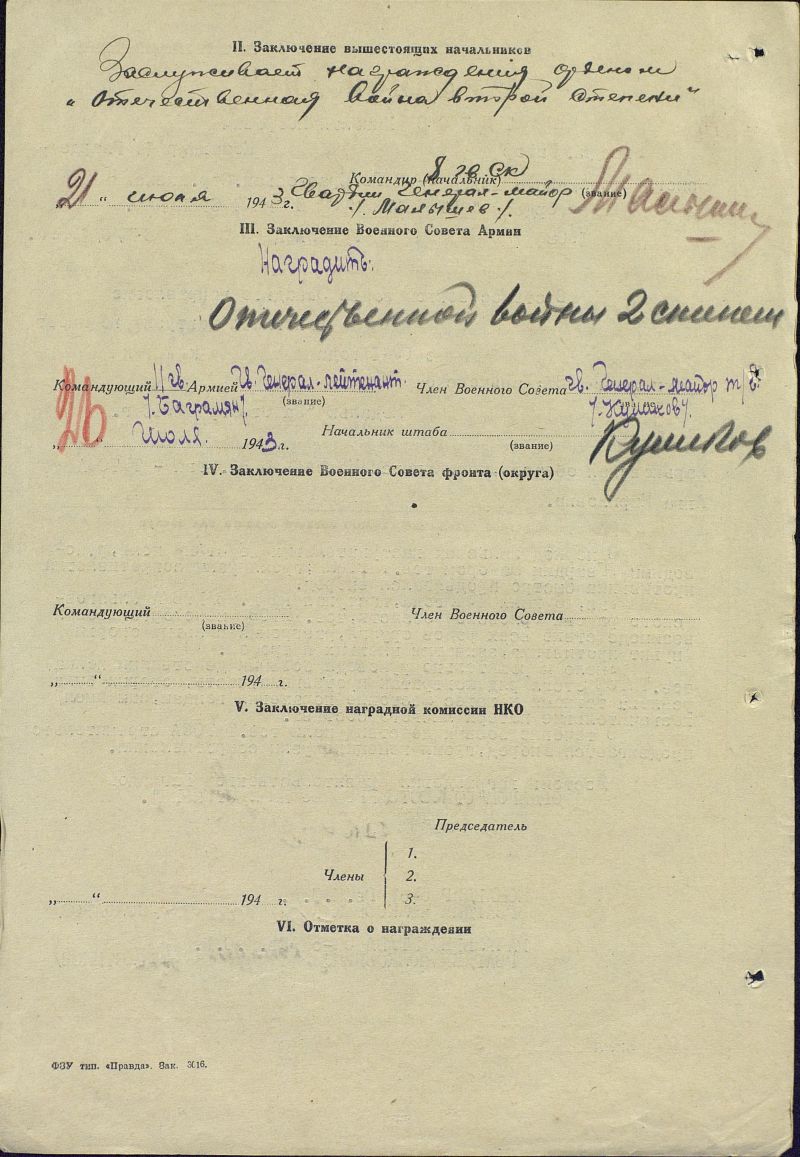 II. Заключение вышестоящих начальников
Заслуживает награждения орденом
"Отечественная война второй степени"
8 гв СК
Командир (начальник)
21 " июля 1943 г. Гвардии Генерал-майор (звание)
/. Малышев /.
III. Заключение Военного Совета Армии
Наградить.
Отечественной войны 2 степени
Командующий 11 гв. Армией Гв. Генерал-лейтенант. Член Военного Совета гв. Генерал-майор т/с.
(звание)
/. Баграмян /. /. Куликов /.
23 Июля. 1943 г. Начальник штаба
(звание)
Куликов
IV. Заключение Военного Совета фронта (округа)
Командующий Член Военного Совета
(звание)
„ “ 194 г.
V. Заключение наградной комиссии НКО
Председатель
1.
Члены 2.
„ “ 194 г. 3.
VI. Отметка о награждении
ФЗУ тип. «Правда». Зак. 3016.